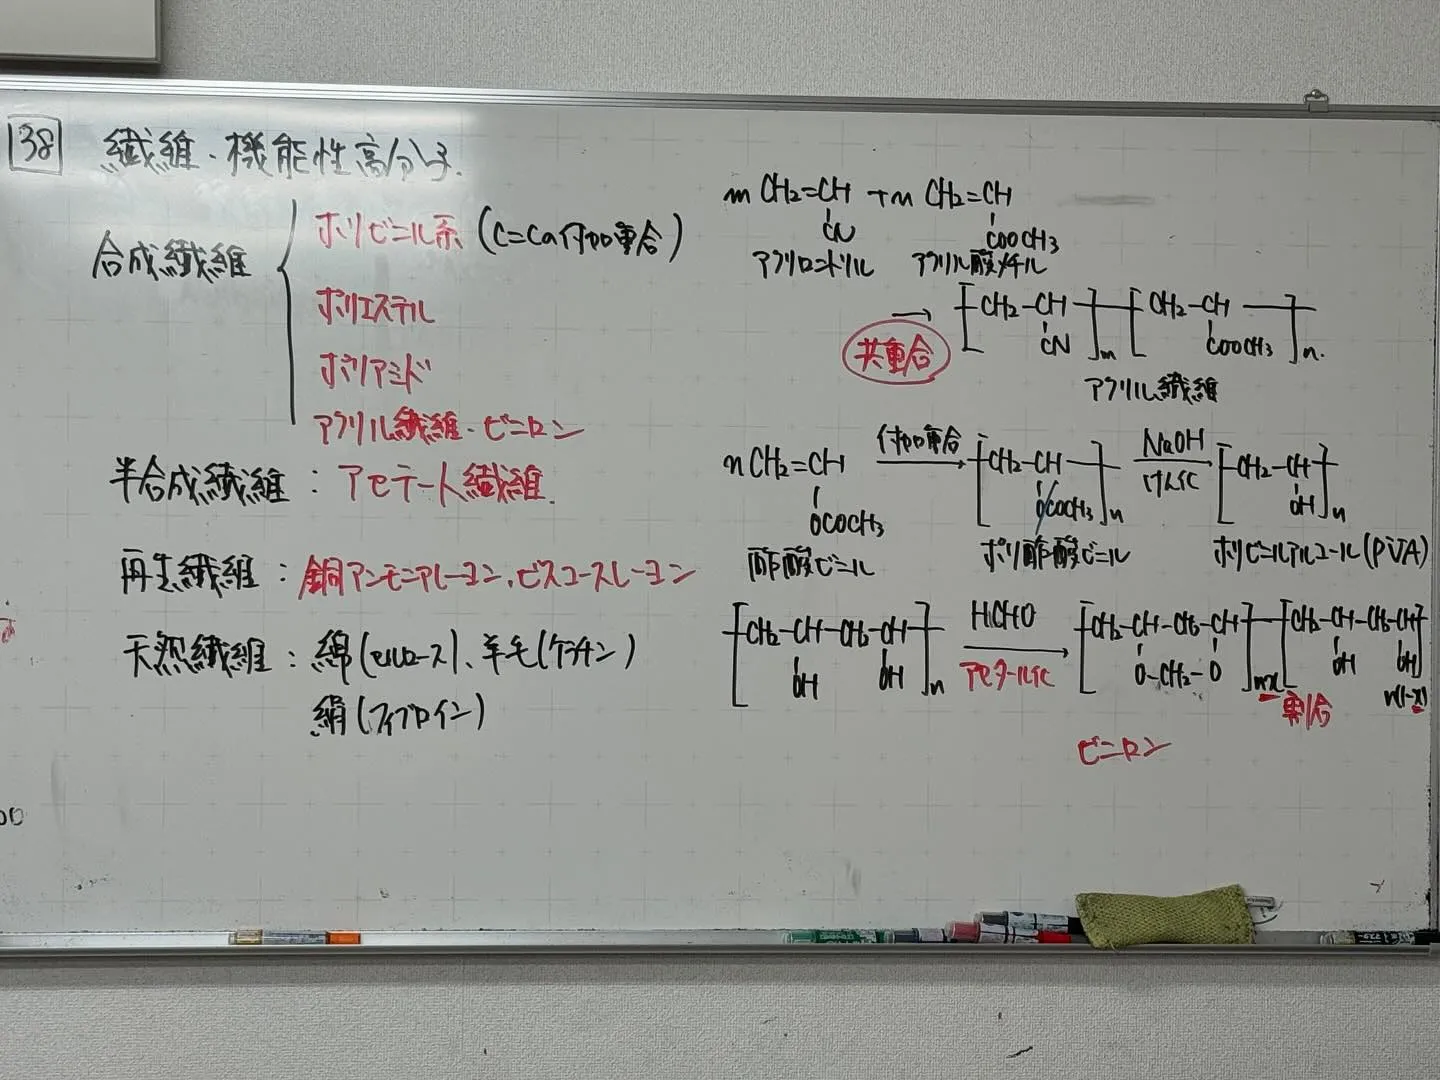 38 繊維・機能性高分子.
合成繊維
ポリビニル系 (C=Cの付加重合)
ポリエステル
ポリアミド
アクリル繊維・ビニロン
半合成繊維 : アセテート繊維.
再生繊維 : 銅アンモニアレーヨン、ビスコースレーヨン
天然繊維 : 綿(セルロース)、羊毛(ケラチン)
絹(フィブロイン)
m CH2=CH + n CH2=CH
CN COOCH3
アクリロニトリル アクリル酸メチル
→ [CH2-CH]m [CH2-CH]n.
CN COOCH3
共重合
アクリル繊維
nCH2=CH 付加重合 [CH2-CH]n NaOH [CH2-CH]n
けん化
OCOCH3 OCOCH3 OH
酢酸ビニル ポリ酢酸ビニル ポリビニルアルコール(PVA)
[CH2-CH-CH2-CH]n HCHO [CH2-CH-CH2-CH]nx [CH2-CH-CH2-CH]n(1-x)
OH OH アセタール化 O-CH2-O OH OH
割合
ビニロン
00